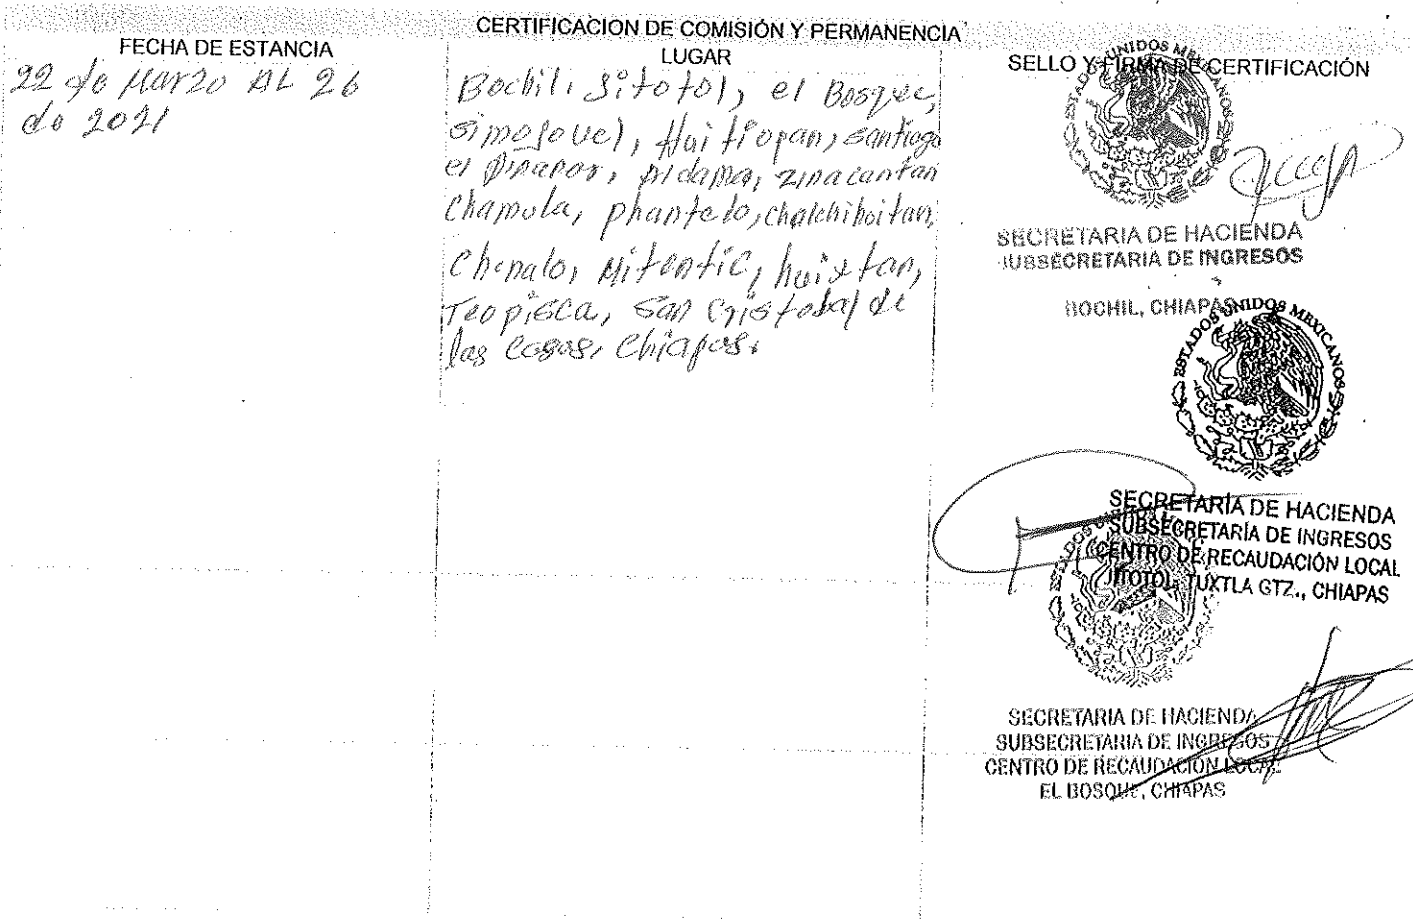 CERTIFICACION DE COMISIÓN Y PERMANENCIA
FECHA DE ESTANCIA
LUGAR
SELLO Y FIRMA DE CERTIFICACIÓN
22 de Marzo AL 26
de 2021
Bochil, Jitotol, el Bosque,
Simojovel, Huitiopan, Santiago
el Pinar, Aldama, Zinacantan
Chamula, phantelo, chalchihuitan,
Chenalo, Mitontic, huixtan,
Teopisca, San Cristobal de
las Casas, Chiapas.
ESTADOS UNIDOS MEXICANOS
SECRETARIA DE HACIENDA
SUBSECRETARIA DE INGRESOS
BOCHIL, CHIAPAS
ESTADOS UNIDOS MEXICANOS
SECRETARÍA DE HACIENDA
SUBSECRETARÍA DE INGRESOS
CENTRO DE RECAUDACIÓN LOCAL
JITOTOL, TUXTLA GTZ., CHIAPAS
ESTADOS UNIDOS
SECRETARIA DE HACIENDA
SUBSECRETARIA DE INGRESOS
CENTRO DE RECAUDACIÓN LOCAL
EL BOSQUE, CHIAPAS